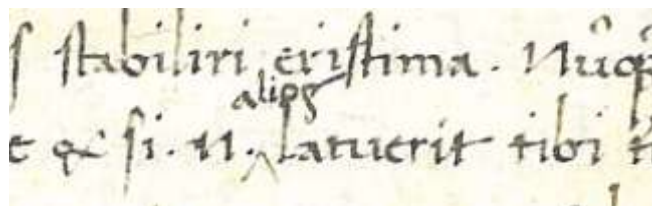 ſ ſtabiliri eriſtima. Nūq
alips
& ſi. n. latuerit tibi